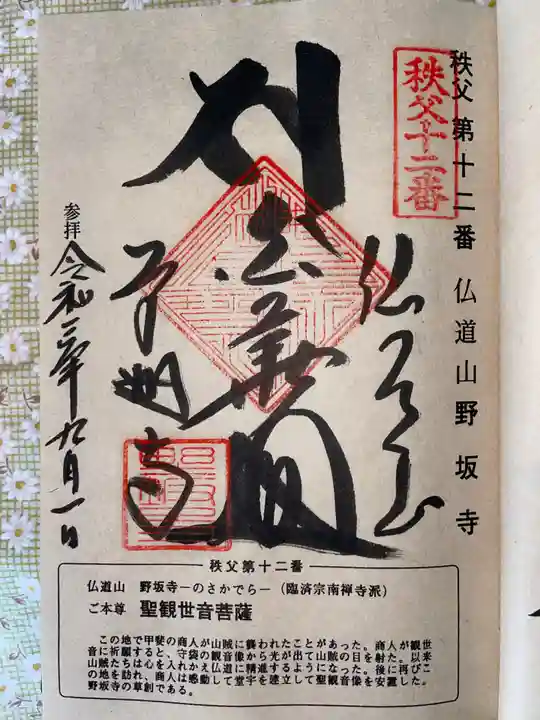 秩父第十二番 仏道山野坂寺
秩父十二番
仏道山
大慈閣
野坂寺
参拝 令和三年九月一日
秩父第十二番
仏道山 野坂寺―のさかでら―(臨済宗南禅寺派)
ご本尊 聖観世音菩薩
この地で甲斐の商人が山賊に襲われたことがあった。商人が観世
音に祈願すると、守袋の観音像から光が出て山賊の目を射た。以来
山賊たちは心を入れかえ仏道に精進するようになった。後に再びこ
の地を訪れ、商人は感動して堂宇を建立して聖観音像を安置した。
野坂寺の草創である。